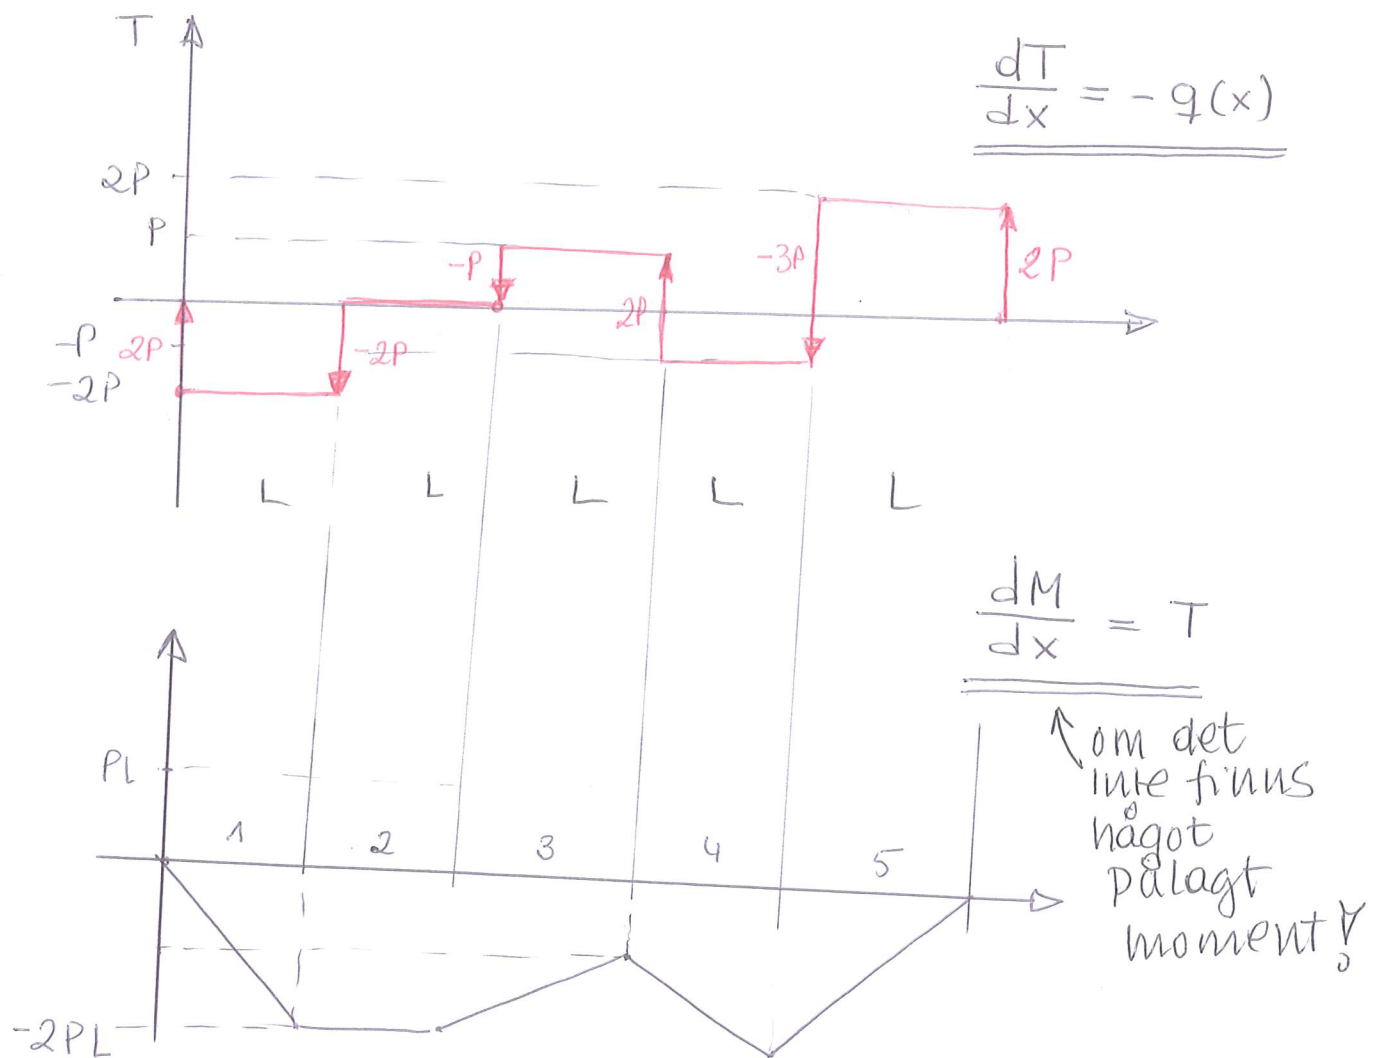 T
dT/dx = - q(x)
2P
P
-P
-3P
2P
2P
-P
2P
-2P
-2P
L L L L L
dM/dx = T
om det
inte finns
något
pålagt
moment!
PL
1 2 3 4 5
-2PL